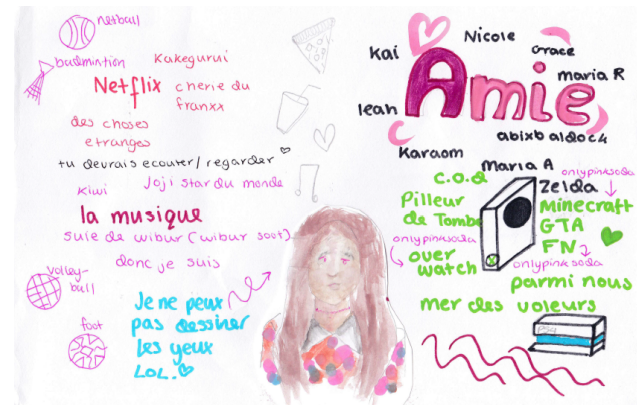 netball
badmintion
Kakegurui
Netflix
cherie du
franxx
des choses
etranges
tu devrais ecouter/regarder
kiwi
Joji star du monde
la musique
suie de wibur (wibur soot)
donc je suis
volley-
ball
foot
Je ne peux
pas dessiner
les yeux
LOL.
Kai
Nicole
Grace
Amie
maria R
leah
abixb aldock
Karaom
Maria A
onlypinksoda
C.O.D
Zelda
Pilleur
de Tombe
Minecraft
GTA
FN
onlypinksoda
over
watch
onlypinksoda
parmi nous
mer des voleurs
PS4